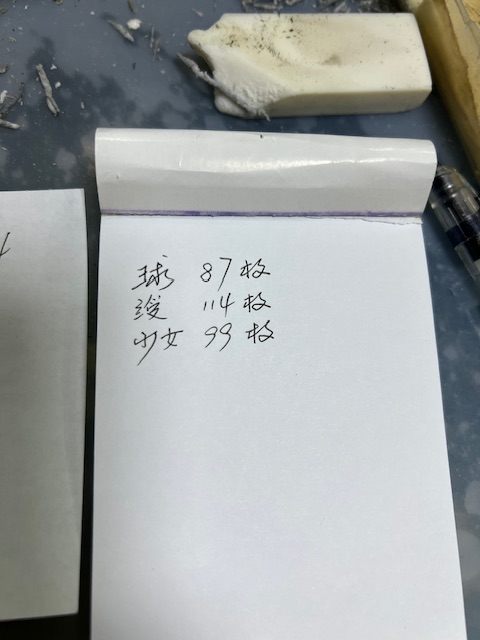 球 87枚
114枚
少女 99枚